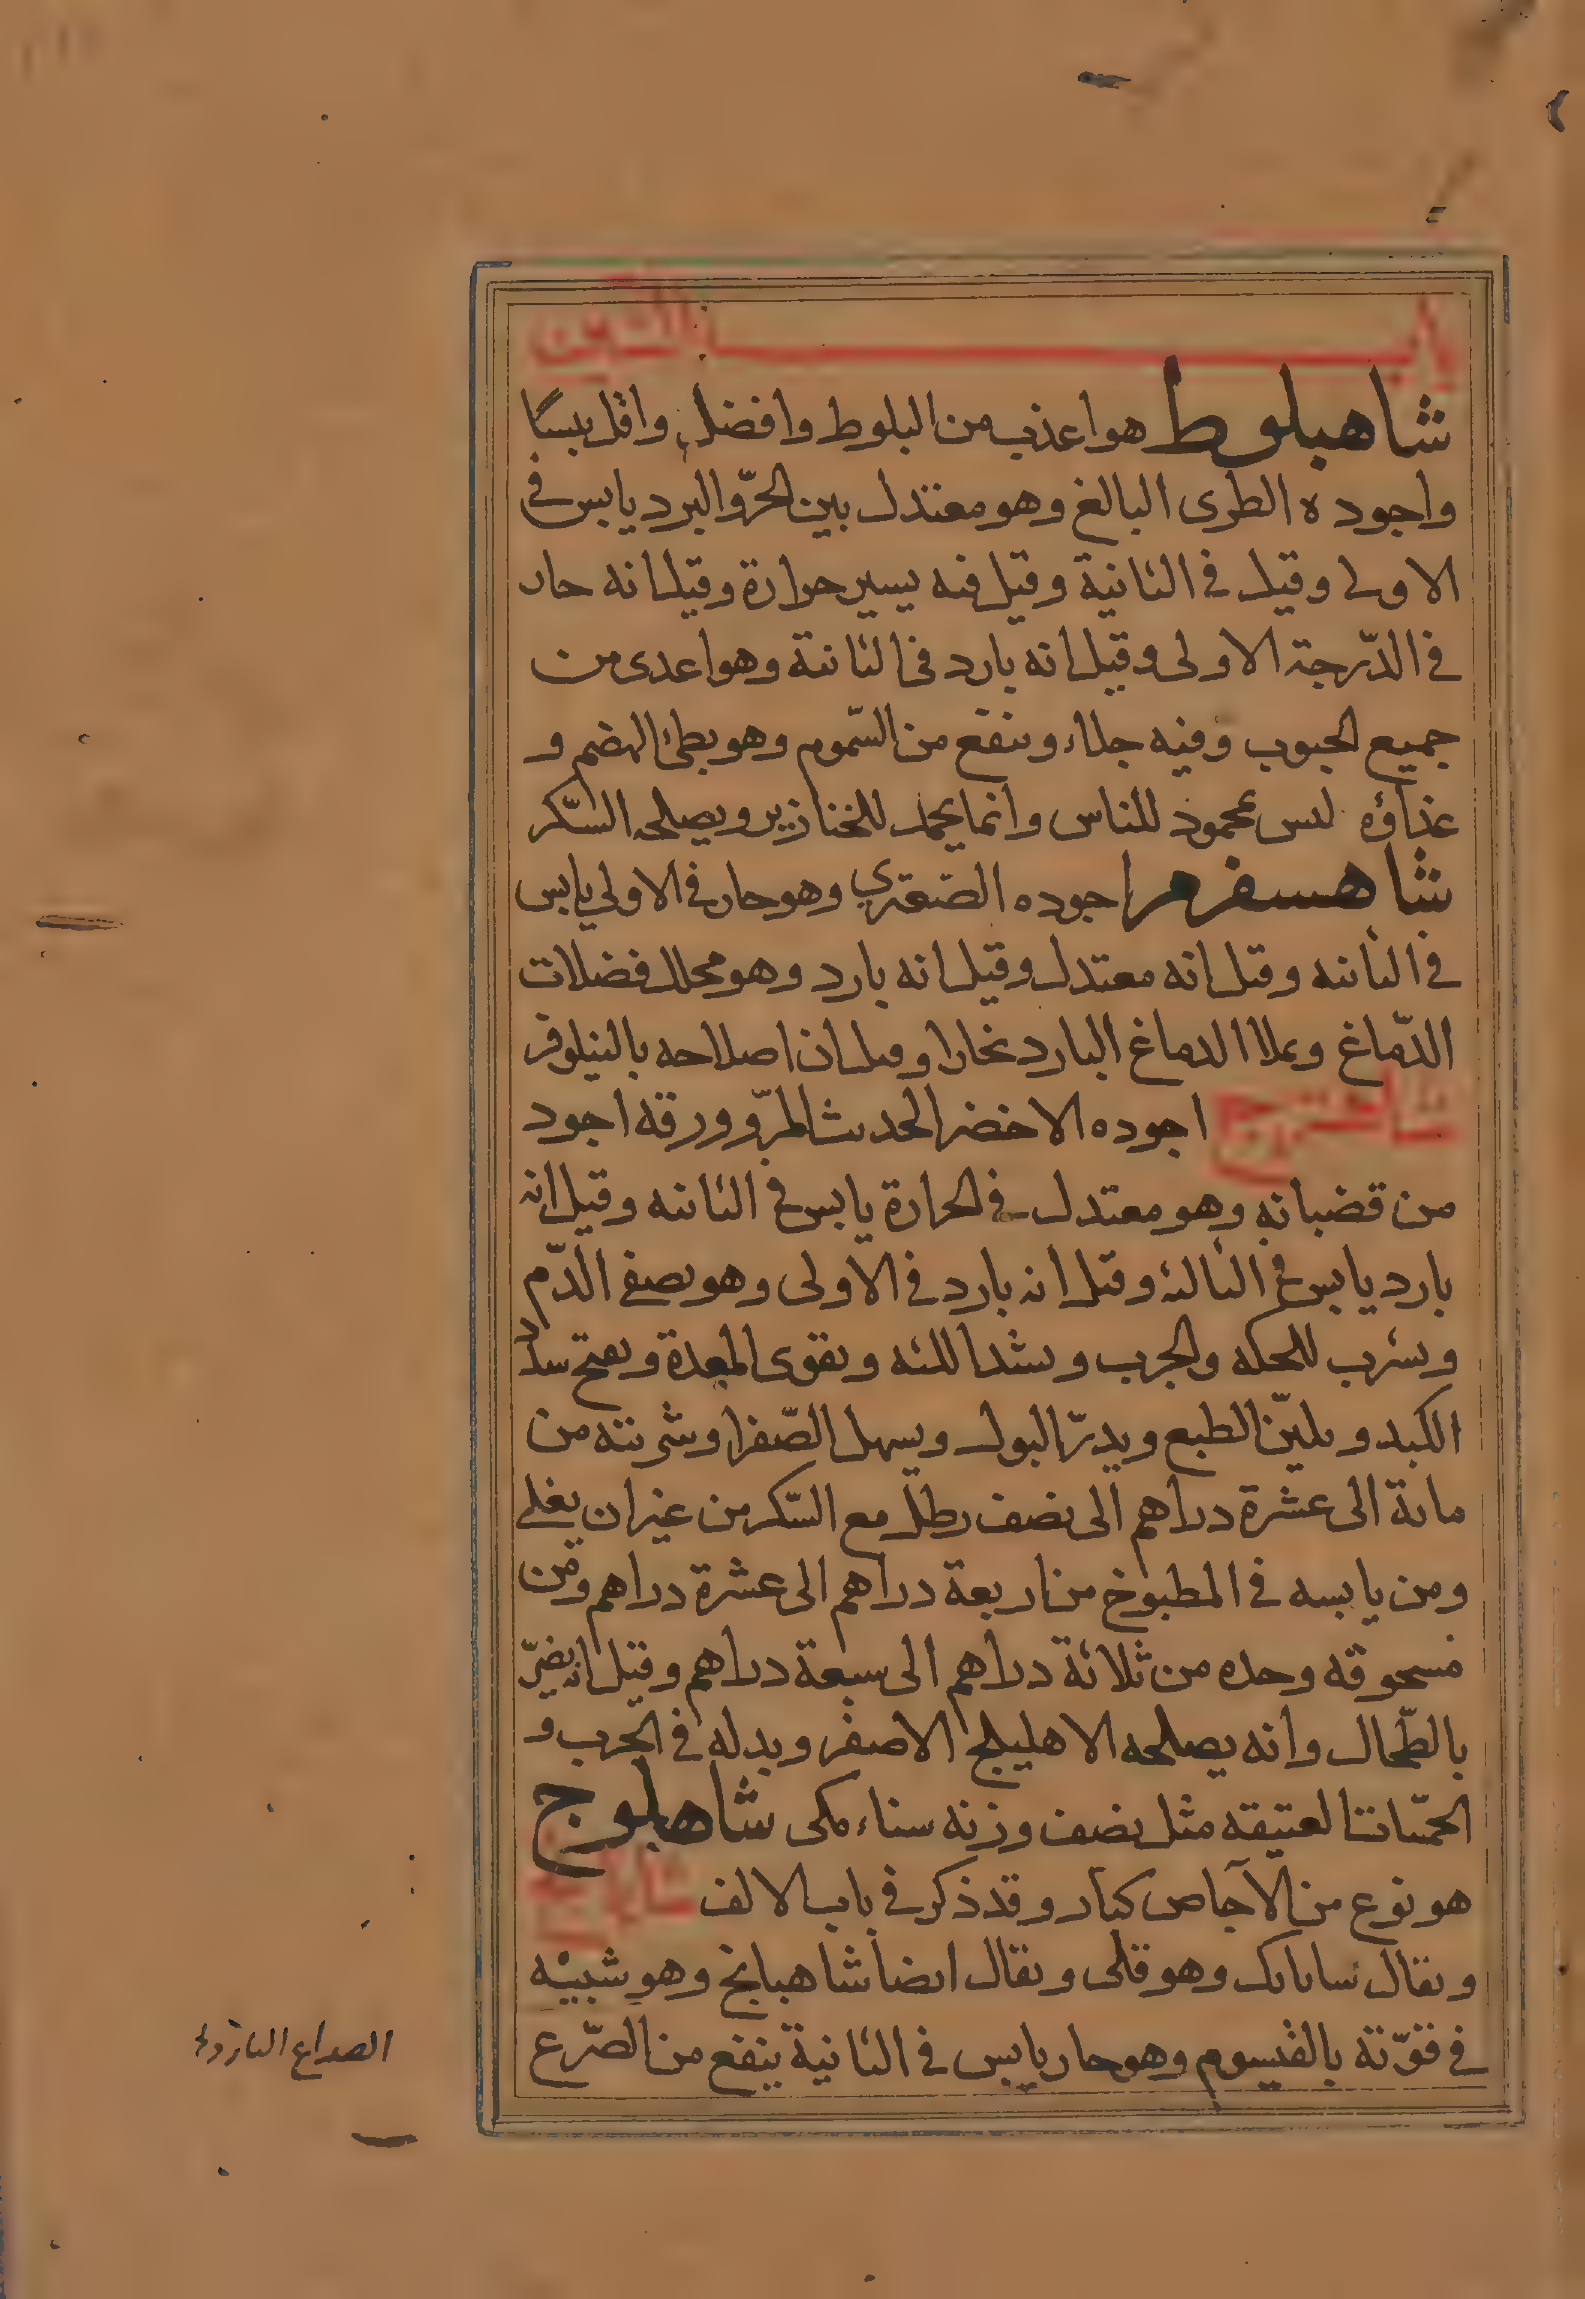 باب الشين
شاهبلوط هو اعذب من البلوط وافضل واقل يبسًا
واجوده الطرى البالغ وهو معتدل بين الحرّ والبرد يابس فى
الاولى وقيل فى الثانية وقيل فيه يسير حرارة وقيل انه حار
فى الدّرجة الاولى وقيل انه بارد فى الثانية وهو اغدى من
جميع الحبوب وفيه جلاء وينفع من السّموم وهو بطئ الهضم و
غذاؤه ليس بمحمود للناس وانما يحمد للخنازير ويصلحه السّكر
شاهسفرم اجوده الصّعتري وهو حار فى الاولى يابس
فى الثانيه وقيل انه معتدل وقيل انه بارد وهو محلل فضلات
الدّماغ ويملا الدماغ البارد بخارا وقيل ان اصلاحه بالنيلوفر
شاهترج اجوده الاخضر الحديث المرّ وورقه اجود
من قضبانه وهو معتدل فى الحرارة يابس فى الثانيه وقيل انه
بارد يابس فى الثالثه وقيل انه بارد فى الاولى وهو يصفى الدّم
ويشرب للحكه والجرب ويشد اللثه ويقوى المعدة ويفتح سدد
الكبد ويليّن الطبع ويدرّ البول ويسهل الصّفرا وشربته من
مائة الى عشرة دراهم الى نصف رطل مع السّكر من غير ان يغلى
ومن يابسه فى المطبوخ من اربعة دراهم الى عشرة دراهم ومن
مسحوقه وحده من ثلاثة دراهم الى سبعة دراهم وقيل انه يضرّ
بالطّحال وانه يصلحه الاهليلج الاصفر وبدله فى الجرب و
الحمّيات العتيقه مثل نصف وزنه سناء مكى شاهلوج
هو نوع من الآجاص كبار وقد ذكر فى باب الالف شابابج
ويقال شابابك وهو قلى ويقال ايضا شاهبانج وهو شبيه
فى قوّته بالقيسوم وهو حار يابس فى الثانية ينفع من الصّرع
الصداع البارد و